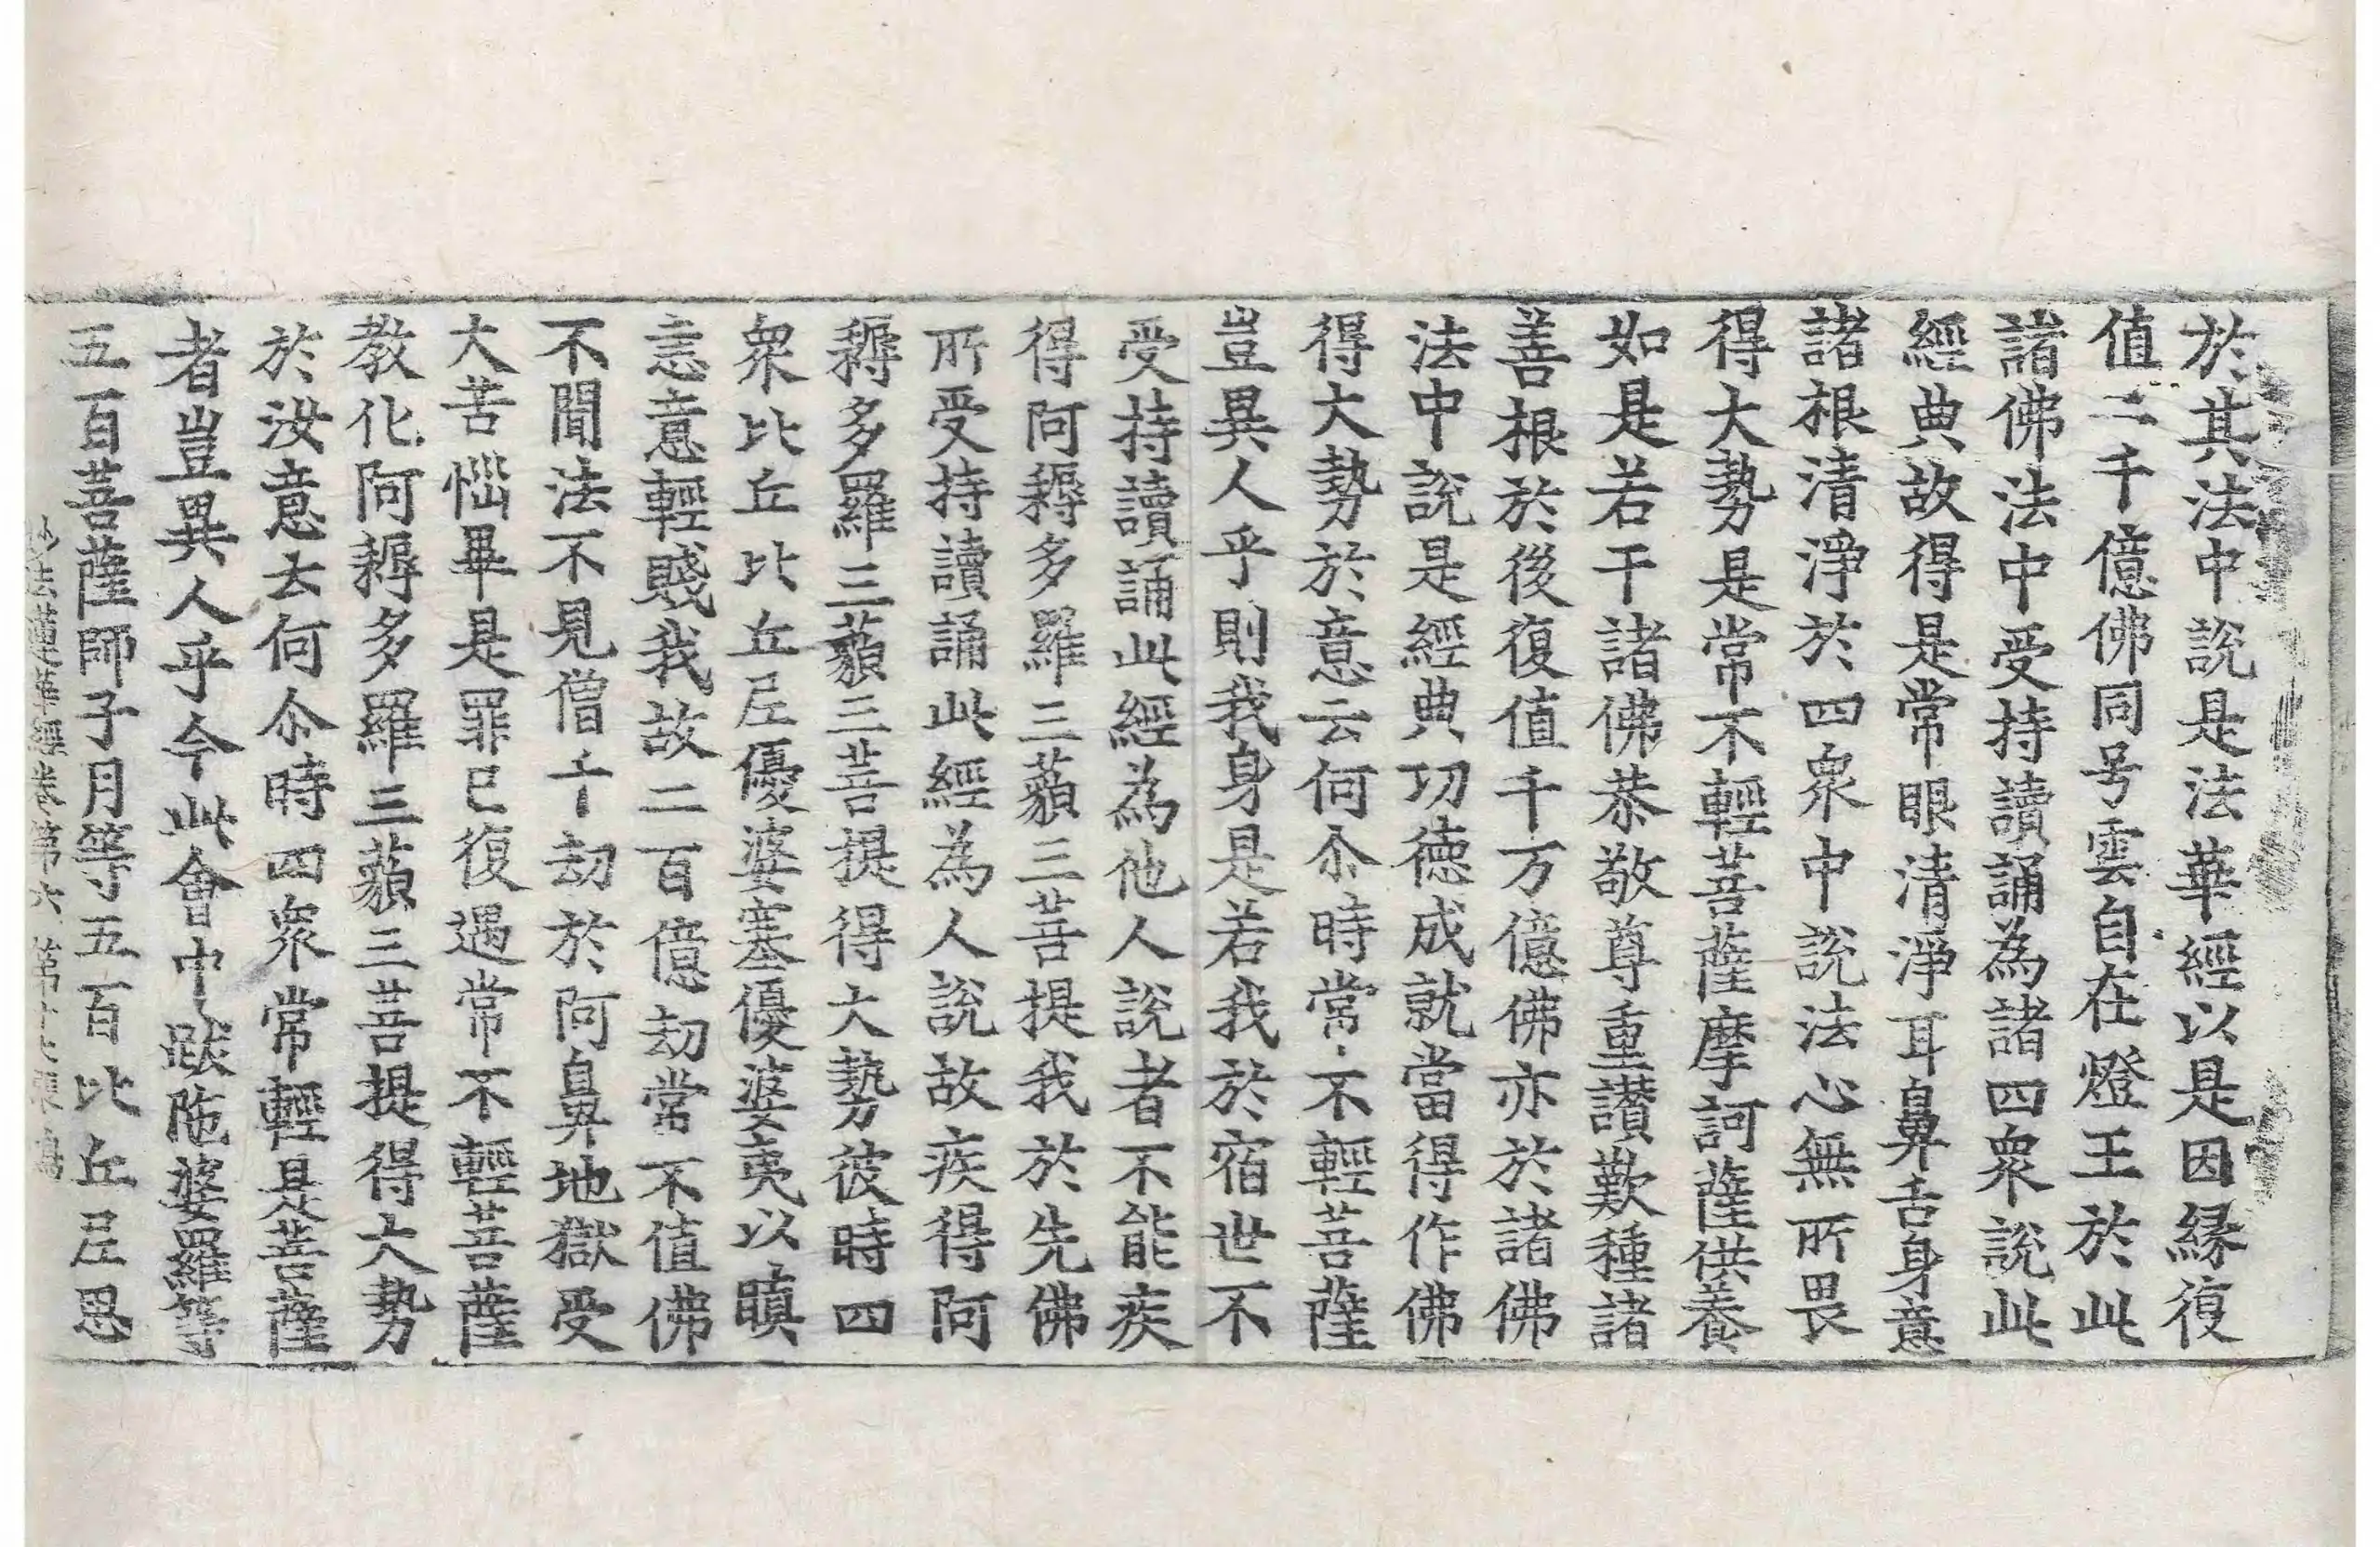 於其法中説是法華經以是因縁復
值二千億佛同号雲自在燈王於此
諸佛法中受持讀誦為諸四衆説此
經典故得是常眼清淨耳鼻舌身意
諸根清淨於四衆中説法心無所畏
得大勢是常不輕菩薩摩訶薩供養
如是若干諸佛恭敬尊重讃歎種諸
善根於後復值千万億佛亦於諸佛
法中説是經典功德成就當得作佛
得大勢於意云何尒時常不輕菩薩
豈異人乎則我身是若我於宿世不
受持讀誦此經為他人説者不能疾
得阿耨多羅三藐三菩提我於先佛
所受持讀誦此經為人説故疾得阿
耨多羅三藐三菩提得大勢彼時四
衆比丘比丘尼優婆塞優婆夷以瞋
恚意輕賤我故二百億劫常不值佛
不聞法不見僧千劫於阿鼻地獄受
大苦惱畢是罪已復遇常不輕菩薩
教化阿耨多羅三藐三菩提得大勢
於汝意云何尒時四衆常輕是菩薩
者豈異人乎今此會中跋陁婆羅等
五百菩薩師子月等五百比丘尼思
妙法蓮華經卷第六 第十七張